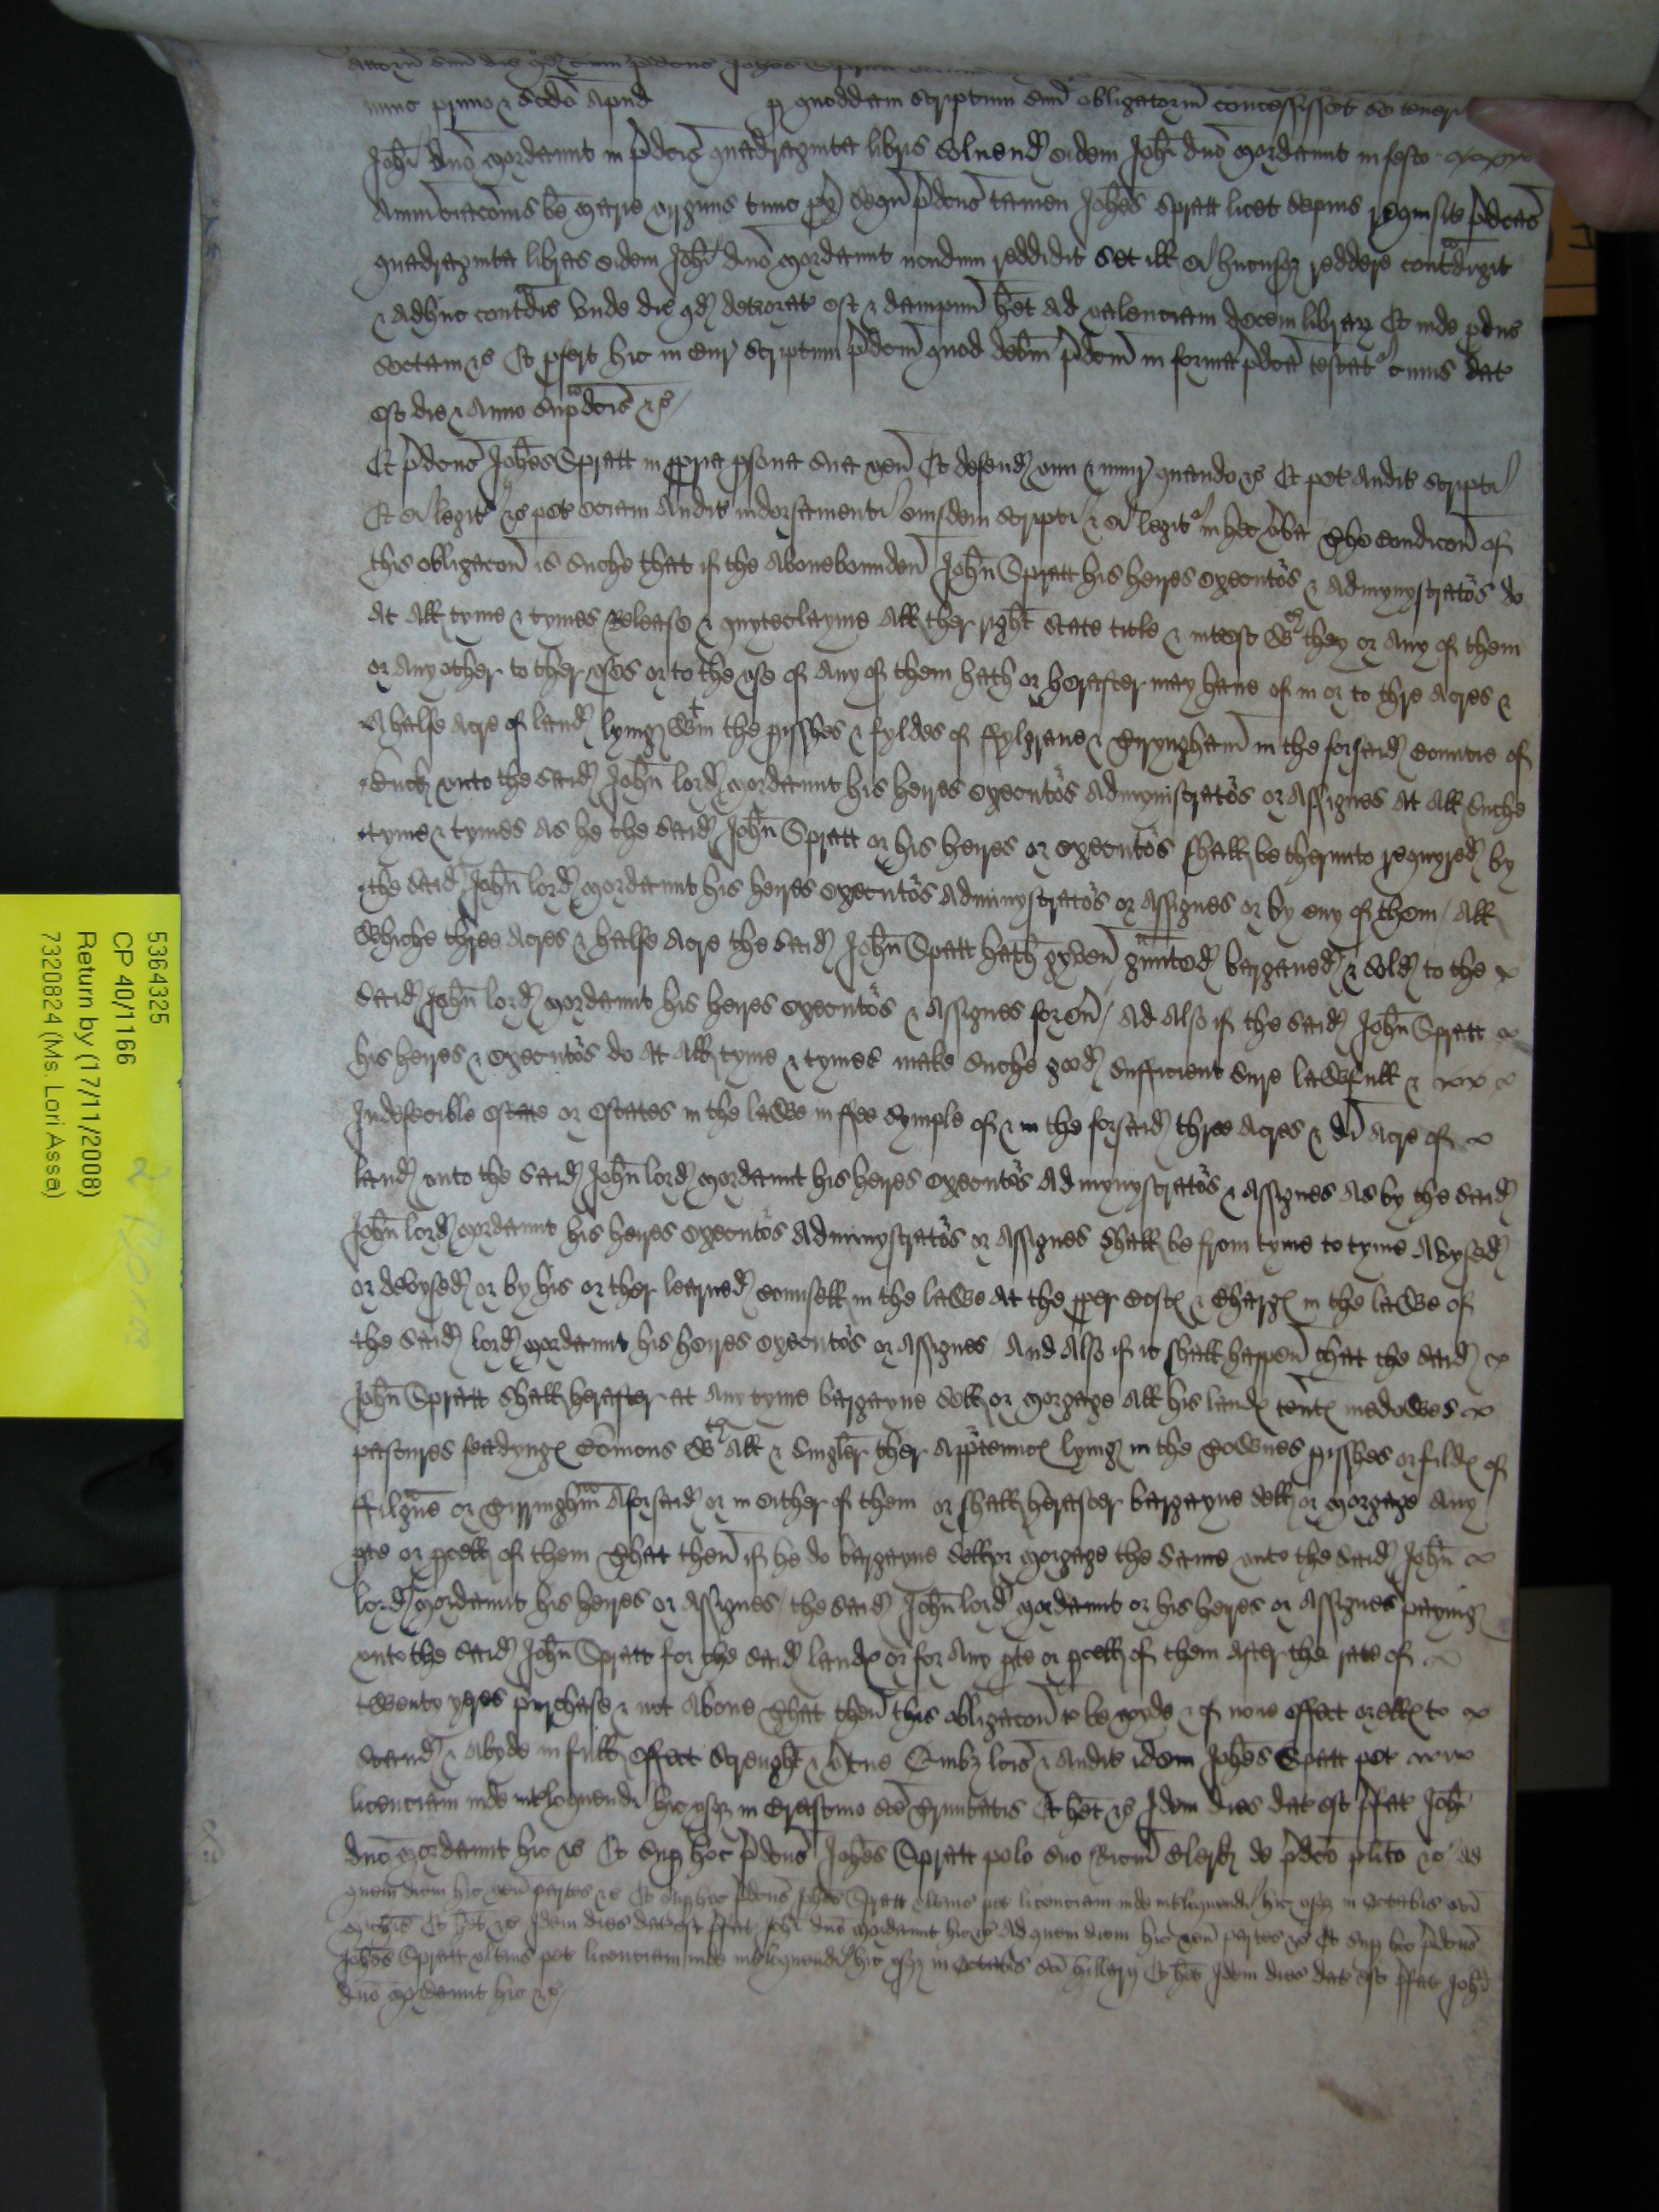 nunc primo & Scdo Apud p quoddam scriptum suu obligatoriu concessisset se teneri
Johi duo Mordaunt in pdcis quadraginta libris solvend eidem Johi duo Mordaunt in festo
Annuciacois be Marie virginis tunc px sequ pdcus tamen Johes Spratt licet sepius requisit pdcas
quadraginta libras eidem Johi duo Mordaunt nondum reddidit Set ill ei hucusqz reddere contradixit
& adhuc contradic Unde dic qd deteriorat est & dampnu het ad valenciam decem librarz Et inde pduc
sectam &c Et pfert hic in cur scriptum pdcm quod debm pdcm in forma pdca testat cuius dat
est die & Anno supadcis &c
Et pdcus Johes Spratt in ppria psona sua ven Et defend vim & iniur quando &c Et pet Audit scripti
Et ei legit &c pet eciam Audit indorsamenti eiusdem scripti & ei legit in hec vba The Condicon of
this obligacon is Suche that if the Abovebounden John Spratt his heyres executors & Admynystrators do
At All tyme & tymes Release & quyteclayme All ther right State title & interest wch they or Any of them
or Any other to ther uses or to the use of Any of them hath or herafter may have of in or to thre Acres &
A halfe Acre of land lying wtin the pisshes & fyldes of Fylgrave & Tyryngham in the forsaid Countie of
Buck unto the said John lord Mordaunt his heyres executors Admynistrators or Assignes At All Suche
tyme & tymes As he the said John Spratt or his heyres or executors shall be therunto requyred by
the said John lord Mordaunt his heyres executors Admynystrators or Assignes or by eny of them / All
Whiche thre Acres & halfe Acre the said John Spratt hath gyven graunted barganed & sold to the
said John lord Mordaunt his heyres executors & Assignes for eu / Ad Also if the said John Spratt
his heyres & executors do At All tyme & tymes make Suche good Sufficient Sure lawfull &
Indefecible estate or estates in the lawe in fee symple of & in the forsaid thre Acres & di Acre of
land unto the said John lord Mordaunt his heyres executors Admynystrators & Assignes As by the said
John lord Mordaunt his heyres executors Admynystrators or Assignes Shall be from tyme to tyme Avysed
or devysed or by his or ther learned counsell in the lawe At the pper Cost & Charg in the lawe of
the said lord Mordaunt his heyres executors or Assignes And Also if it shall happen that the said
John Spratt Shall herafter at Any tyme bargayne sell or Morgage All his land tent medowes
pastures feadyng Comons wth All & Singler ther Apptennc lying in the Townes pisshes or fild of
Filgrave or Tirringham Aforsaid or in either of them or shall herafter bargayne sell or Morgage Any
pte or pcell of them That then if he do bargayne sell or Morgage the same unto the said John
lord Mordaunt his heyres or Assignes / the said John lord Mordaunt or his heyres or Assignes paying
unto the said John Spratt for the said land or for Any pte or pcell of them After the rate of
twenty yeres purchase & not Above That then this obligacon to be voyde & of none effect or ell to
Stand & abyde in full effect Strenght & vtue Quibz lcis & Auditis idem Johes Spratt pet
licenciam inde interloquendi hic usqz in Crastino sce Trinitatis Et het &c Idem dies dat est pfat Johi
duo Mordaunt hic &c Et Sup hoc pdcus Johes Spratt po lo suo Ricm Clerk de pdco plito &c Ad
quem diem hic ven partes &c Et Sup hoc pdcus Johes Spratt ulterius pet licenciam inde interloquendi hic usqz in Octabis sci
Michis Et het &c Idem dies dat est pfat Johi duo Mordaunt hic &c Ad quem diem hic ven partes &c Et Sup hoc pdcus
Johes Spratt ulterius pet licenciam inde interloquendi hic usqz in Octabis sci hillarii Et het Idem dies dat est pfat Johi
duo Mordaunt hic &c
5364325
CP 40/1166
Return by (17/11/2008)
7320824 (Ms. Lori Assa)